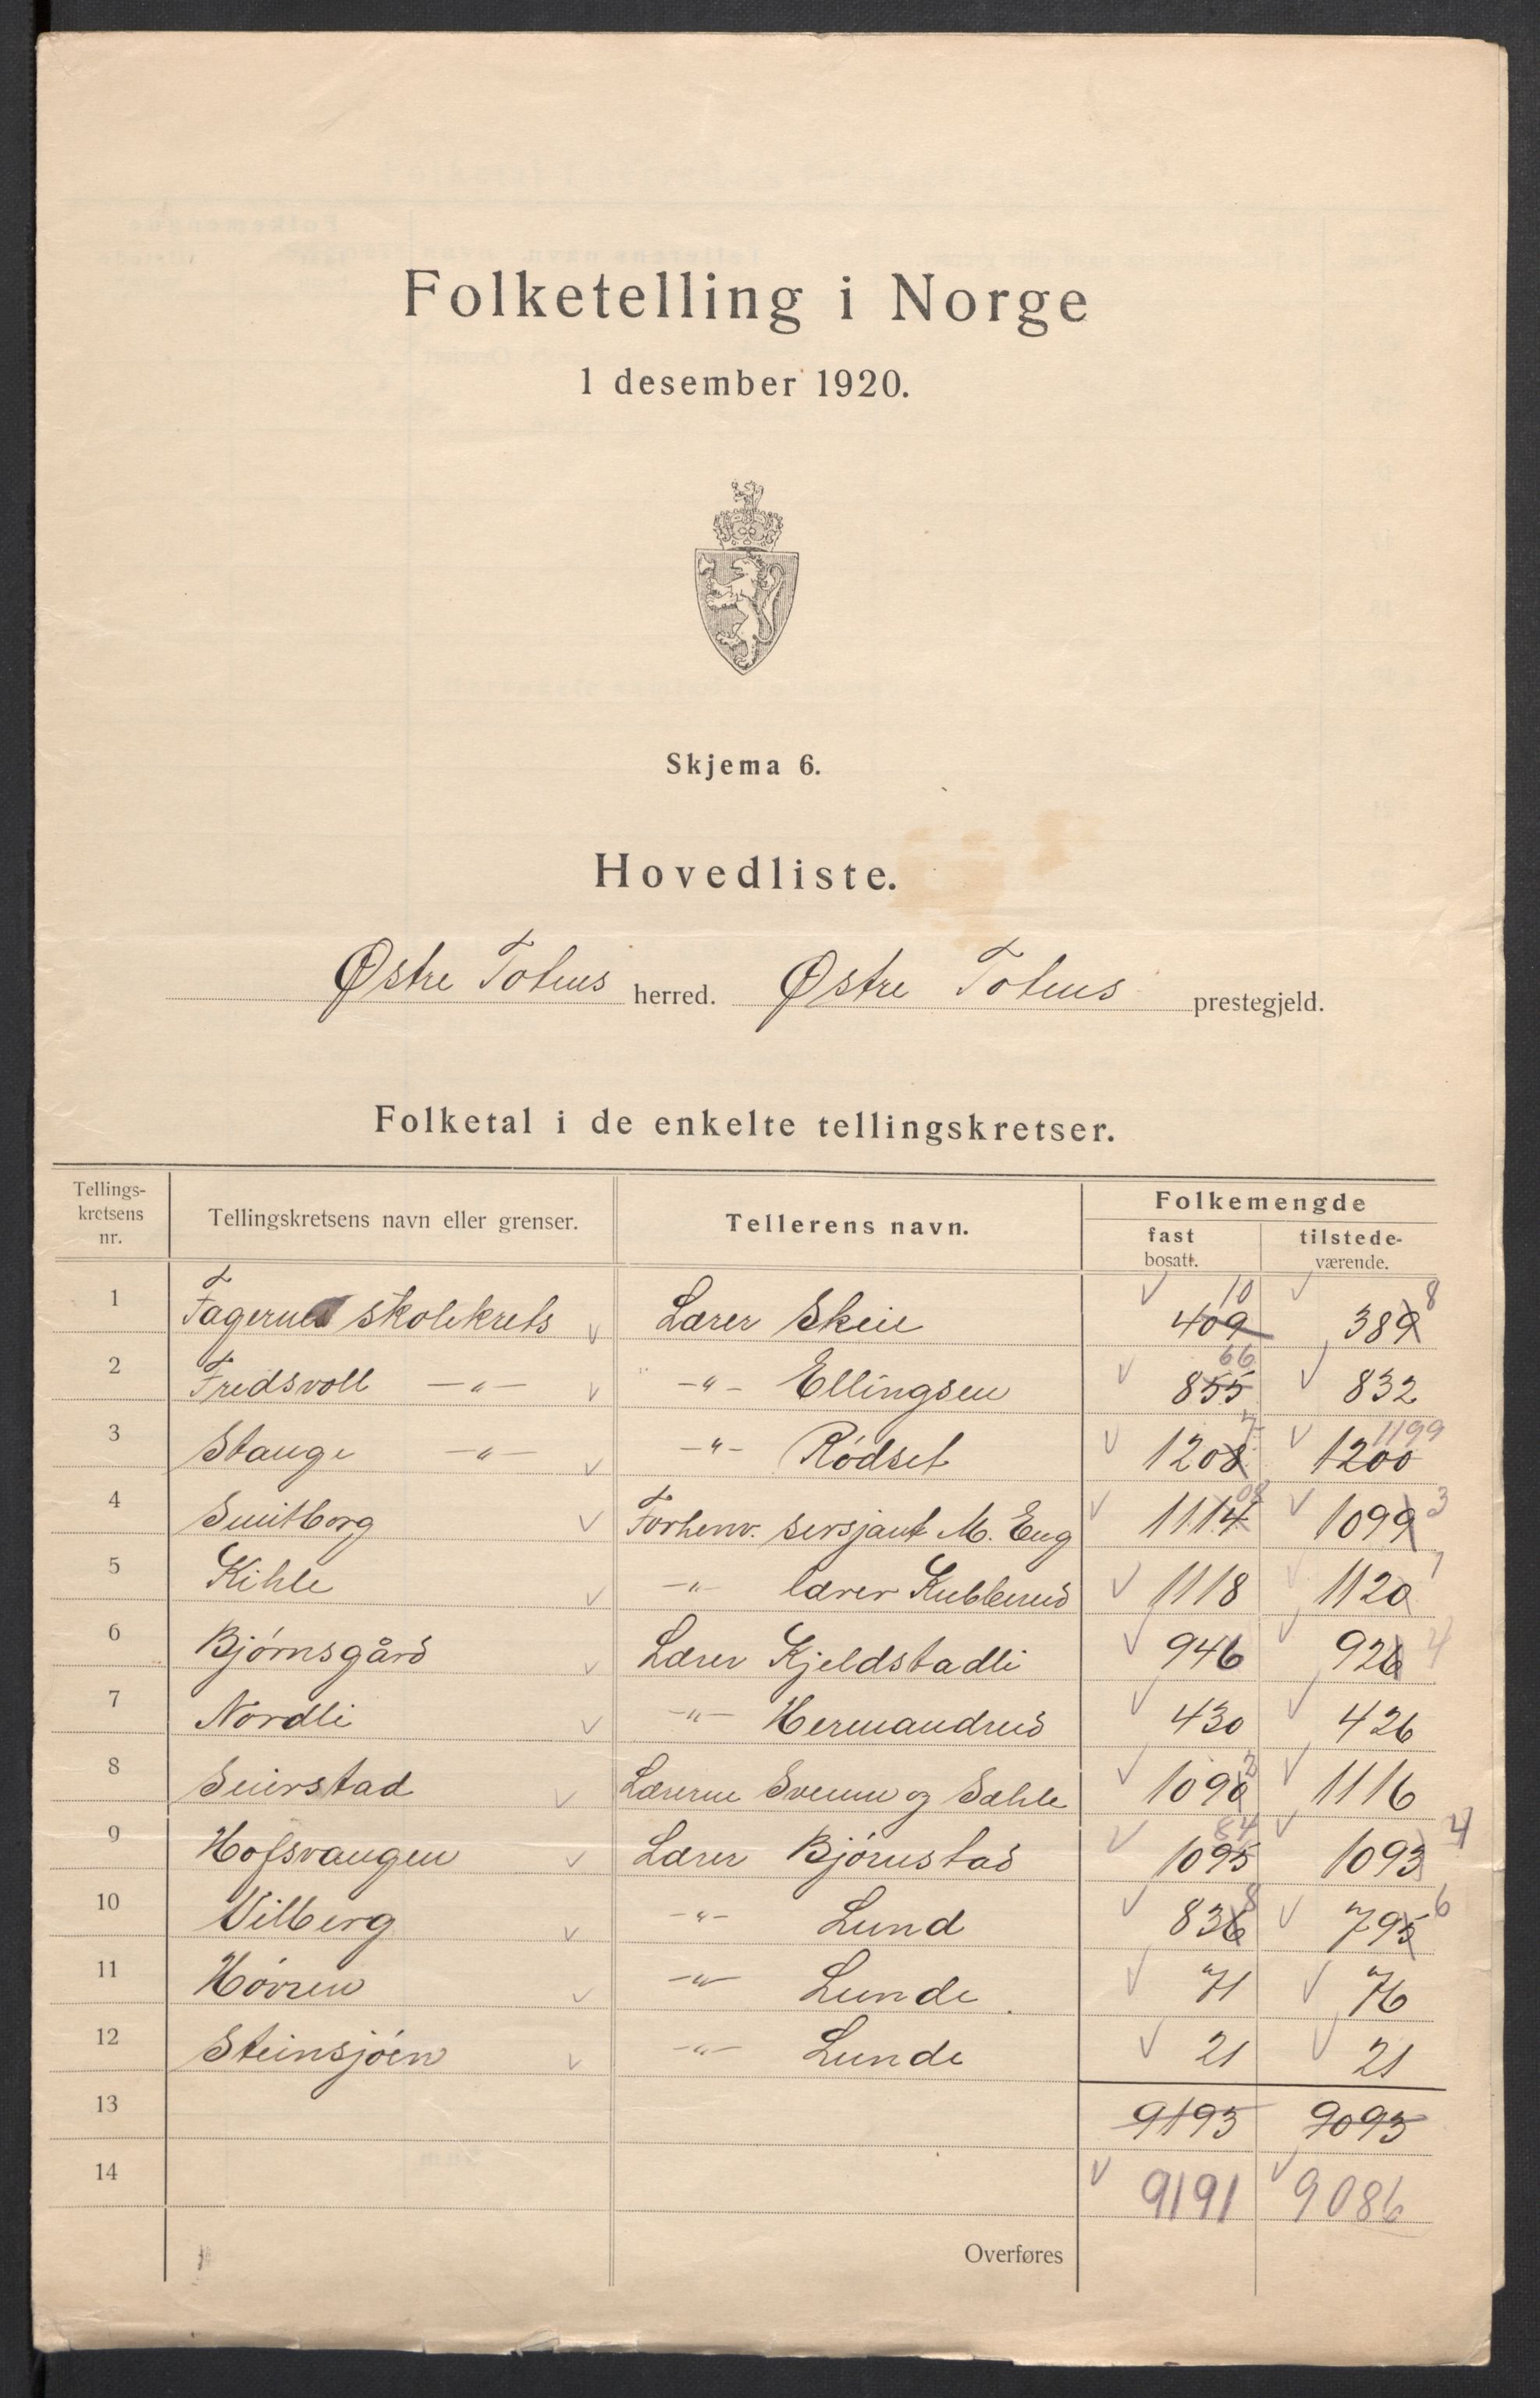 Folketelling i Norge
1 desember 1920.
Skjema 6.
Hovedliste.
Østre Totens herred. Østre Totens prestegjeld.
Folketal i de enkelte tellingskretser.
Tellings-
kretsens
nr.
Tellingskretsens navn eller grenser.
Tellerens navn.
Folkemengde
fast
bosatt.
tilstede-
værende.
10 8
1 Fagernes skolekrets v Lærer Skeie v 409 v 389
66
2 Fredsvoll —„— v —„— Ellingsen v 855 v 832
7 1199
3 Stange —„— v —„— Rødset v 1208 v 1200
08 3
4 Smitborg v Forhenv. sersjant M. Eng v 1114 v 1099
1
5 Kihle v —„— lærer Kubberud v 1118 v 1120
6 Bjørnsgård v Lærer Kjeldstadli v 946 v 926 4
7 Nordli v —„— Hermandrud v 430 v 426
3
8 Seierstad v Lærerne Svenne og Sæhle v 1090 v 1116
84 4
9 Hofsvangen v Lærer Bjørnstad v 1095 v 1093
8 6
10 Vilberg v —„— Lund v 836 v 795
11 Høvren v —„— Lunde. v 71 v 76
12 Steinsjøen v —„— Lunde v 21 v 21
13 9193 9093
14 v 9191 v 9086
Overføres